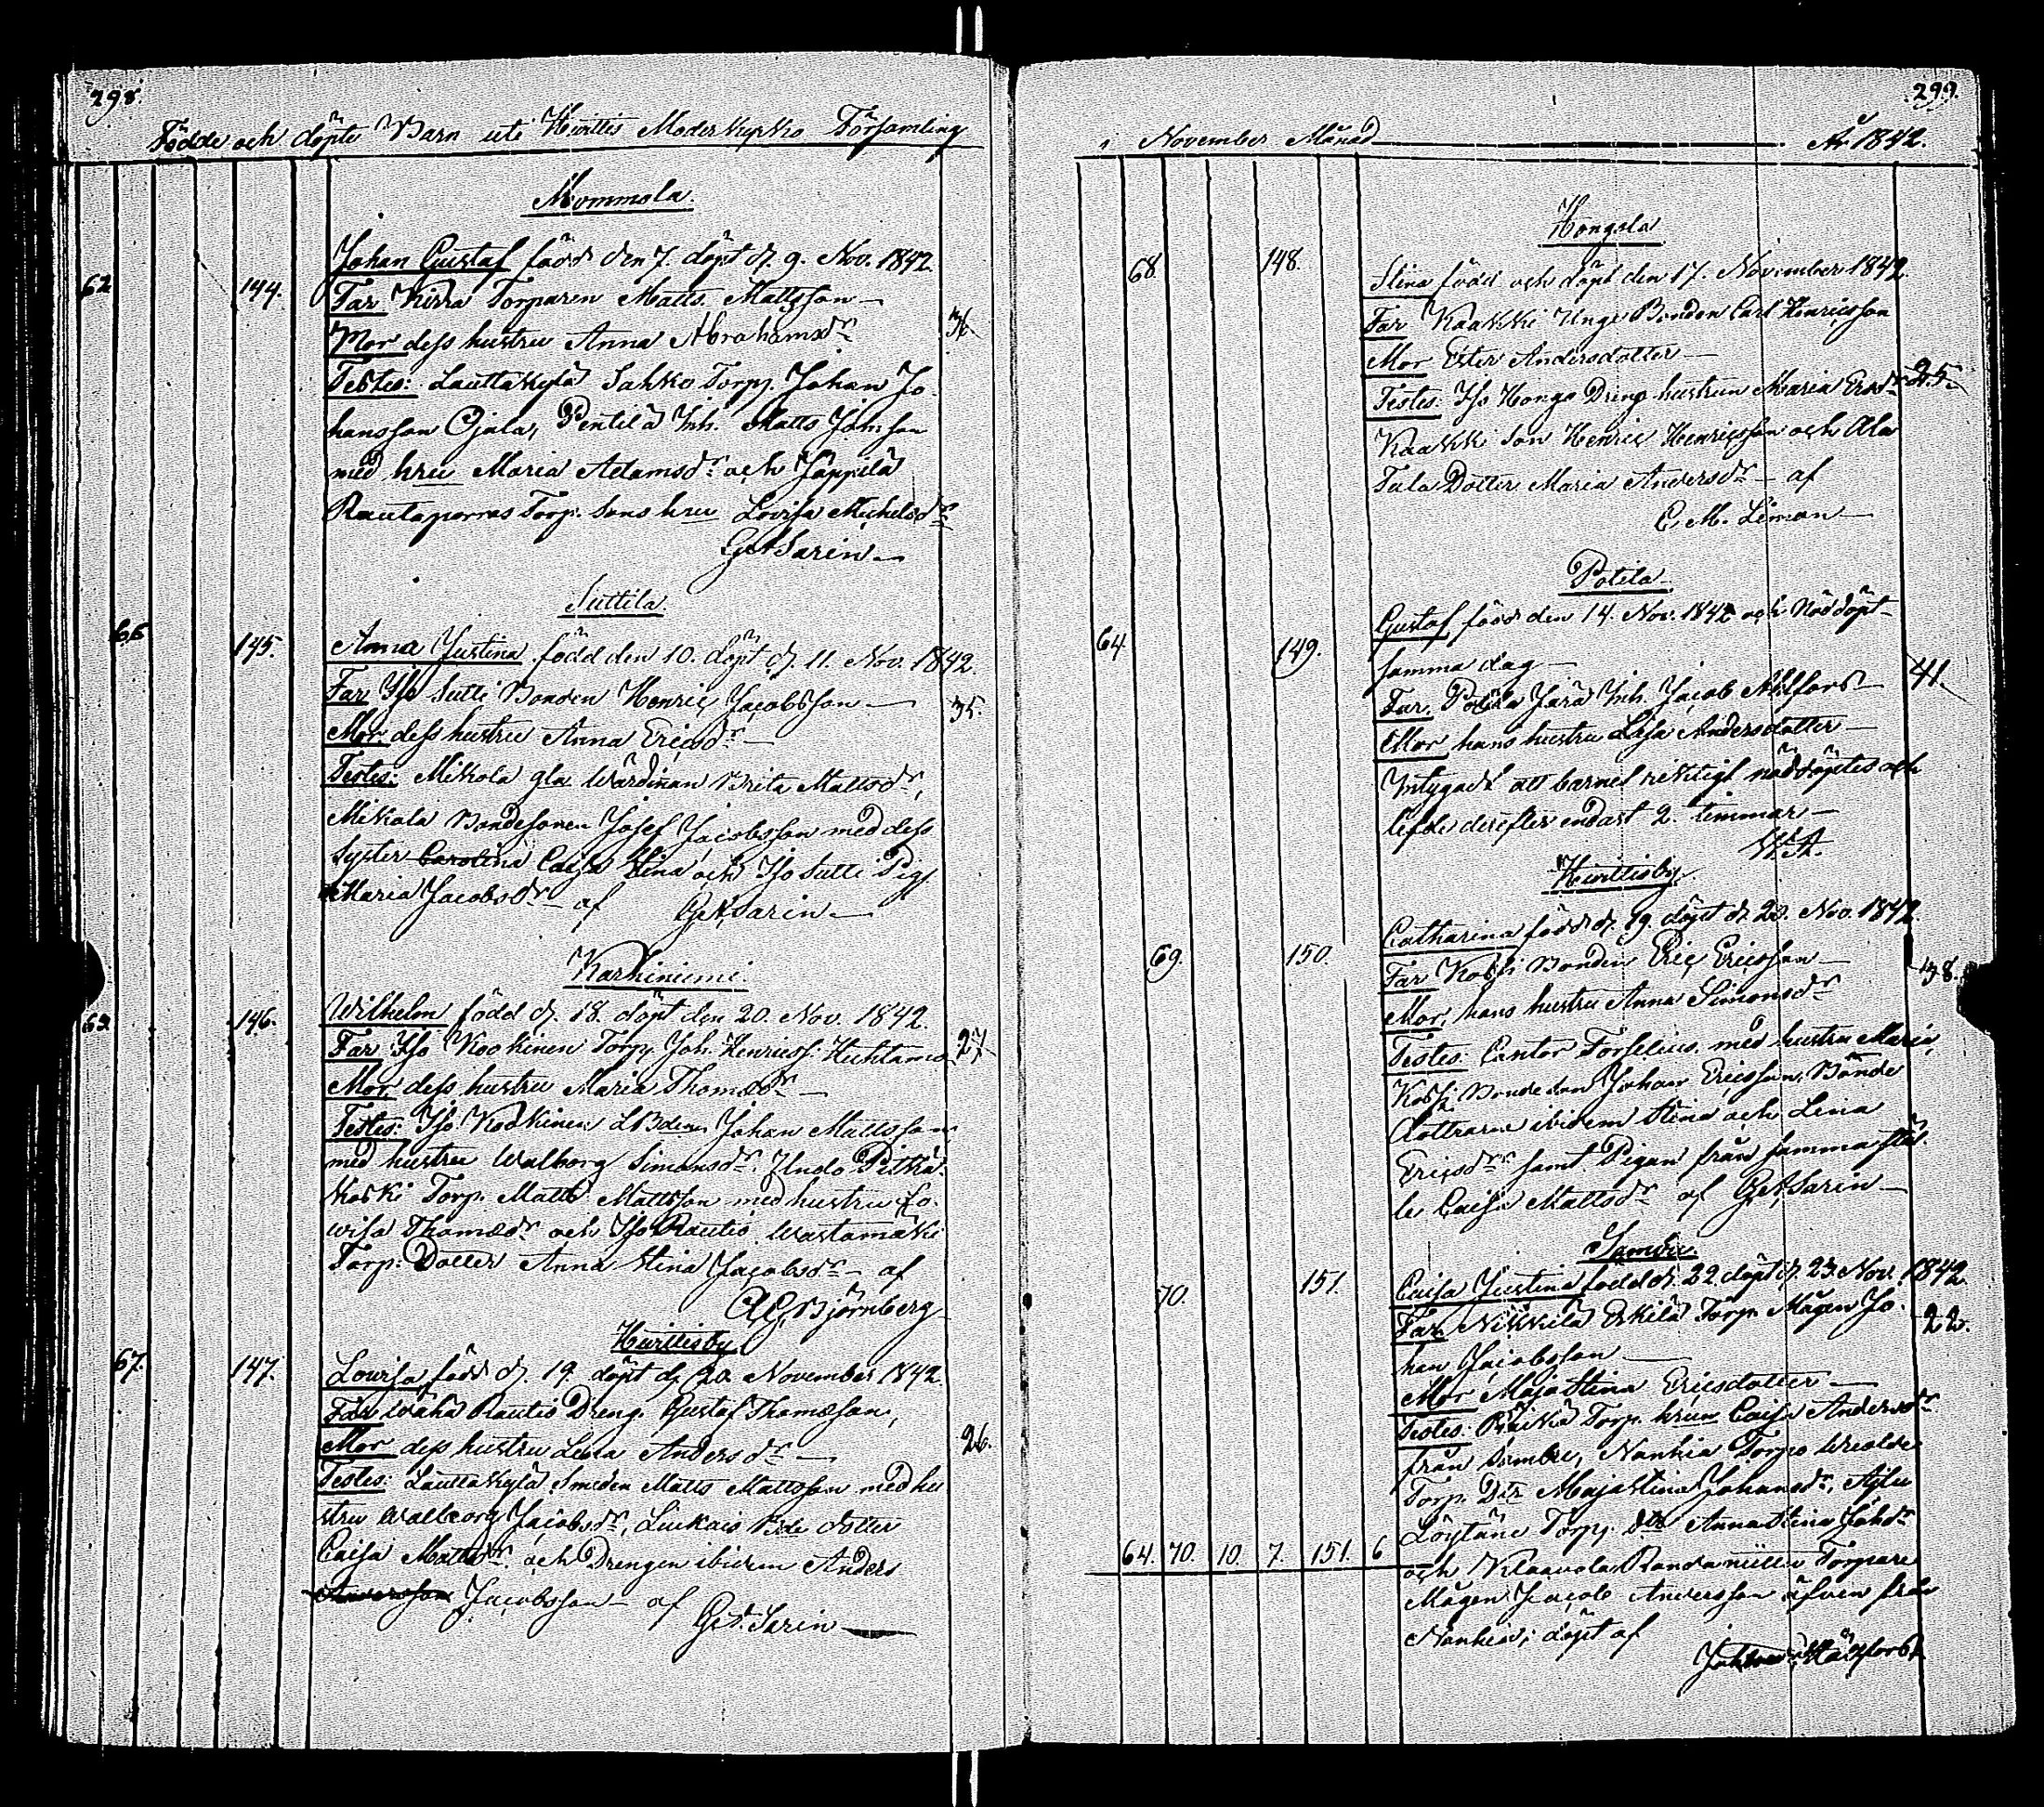 298.
Födde och döpte Barn uti Hvittis Moderkyrko Församling
Mommola.
62 144. Johan Gustaf född den 7. döpt d. 9. Nov. 1842.
Far Kirra Torparen Matts Mattsson
Mor dess hustru Anna Abrahamsdr 36.
Testes: Lauttakylä Sahko Torp. Johan Jo-
hansson Ojala, Pentilä Inh. Matts Johsson
med hru Maria Adamsdr och Jåppilä
Rautaporras Torp. sons hru Lovisa Michelsdr
G. A. Sarin
Suttila.
66 145. Anna Justina född den 10. döpt d. 11. Nov. 1842.
Far Iso Sutti Bonden Henric Jacobsson 35.
Mor dess hustru Anna Ericsdr
Testes: Mikola gla Wärdinan Brita Mattsdr,
Mikola Bondesonen Josef Jacobsson med dess
Syster Carolina Caisa Stina och Iso Sutti Pig.
Maria Jacobsdr af G. A. Sarin
Karhiniemi.
63. 146. Wilhelm född d. 18. döpt den 20. Nov. 1842.
Far Iso Kookinen Torp. Joh. Henricss. Huhtamo 27
Mor dess hustru Maria Thomædr
Testes: Iso Kookinen LBden Johan Mattsson
med hustru Walborg Simonsdr. Undo Pitkä-
koski Torp. Matts Mattsson med hustru Lo-
wisa Thomædr och Iso Rautio Wartamäki
Torp. Dotter Anna Stina Jacobsdr af
A. G. Björnberg
Hvittisby
67. 147. Lovisa född d. 19. döpt d. 20. November 1842.
Far Wähä Rautio Dreng. Gustaf Thomæson,
Mor dess hustru Lena Andersdr 26.
Testes: Lauttakylä Smeden Matts Mattsson med hu-
stru Walborg Jacobsdr, Luukais Bde dotter
Caisa Mattsdr och Drengen ibidem Anders
Andersson Jacobsson af
G. A. Sarin
299.
i November Månad År 1842.
Hongola
68. 148. Stina född och döpt den 17. November 1842.
Far Kaakki Unge Bonden Carl Henricsson
Mor Ester Andersdotter
Testes: Iso Hongo Dreng hustrun Maria Ersdr 25.
Kaakki Son Henric Henricsson och Ala
Tula Dotter Maria Andersdr af
C. M. Liman
Potila
64. 149. Gustaf född den 14. Nov. 1842 och Nöddöpt
samma dag
Far Potila Jara Inh. Jacob Ahlfors 41.
Mor hans hustru Lisa Andersdotter
Intygadt att barnet riktigt nöddöptes och
lefde derefter endast 2. timmar
Hvittisby.
69. 150. Catharina född d. 19. döpt d. 20. Nov. 1842.
Far Koski Bonden Eric Ericsson 38.
Mor, hans hustru Anna Simonsdr
Testes: Cantor Forselius med hustru Maria,
Koski Bondeson Johan Ericsson, Bonde
dottrarne ibidem Stina och Lena
Ericsdrr samt Pigan från samma stäl-
le Caisa Mattsdr af G. A. Sarin
Samdu
70. 151. Caisa Justina född d. 22 döpt d. 23. Nov. 1842.
Far Nikkilä Eskilä Torp. Mågen Jo- 22.
han Jacobsson
Mor Maja Stina Ericsdotter
Testes: Räikkä Torp. hrun Caisa Andersdr
från Sambu, Nankia Torpo
Torp. Dtr Maja Stina Johansdr,
Löytäne Torp. dtr Anna Stina Johdr
64. 70. 10. 7. 151. 6 och Klaavola Randaniittu Torpare
Mågen Jacob Andersson äfven från
Nankia; döpt af